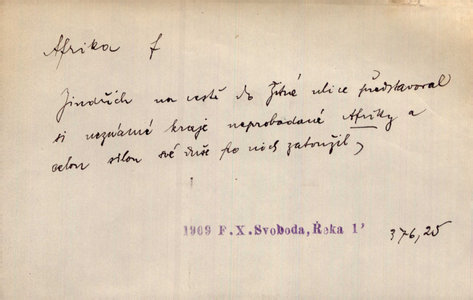 Afrika f
Jindřich na cestě do Žitné ulice představoval
si neznámé kraje neprobádané Afriky a
celou silou své duše po nich zatoužil,
1909 F.X.Svoboda, Řeka 1'
376,25